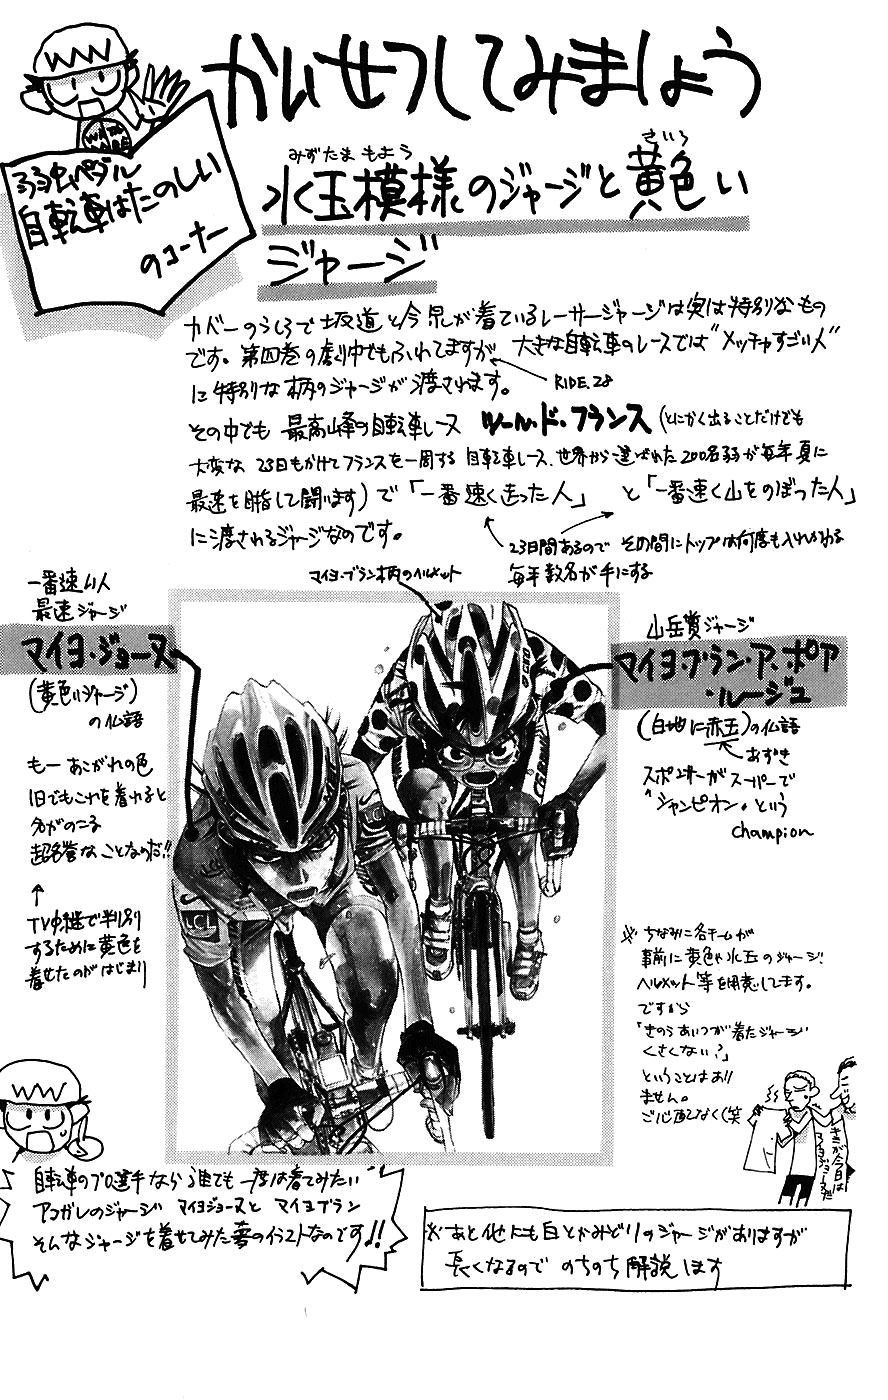 かいせつしてみましょう
弱虫ペダル
自転車はたのしい
のコーナー
みずたま もよう
さいろ
水玉模様のジャージと黄色い
ジャージ
カバーのうしろで坂道と今泉が着ているレーサージャージは実は特別なもの
です。第四巻の劇中でもふれてますが、大きな自転車のレースでは"メッチャすごい人"
に特別な柄のジャージが渡されます。
RIDE.28
その中でも 最高峰の自転車レース ツール・ド・フランス (とにかく出ることだけでも
大変な 23日もかけてフランスを一周する 自転車レース、世界から選ばれた200名弱が毎年夏に
最速を目指して闘います)で「一番速く走った人」 と「一番速く山をのぼった人」
に渡されるジャージなのです。
23日間あるので その間にトップは何度も入れかわる
毎年数名が手にする
一番速い人
最速ジャージ
マイヨ・ジョーヌ
(黄色いジャージ)
の仏語
もー あこがれの色
1日でもこれを着れると
名がのこる
超名誉なことなのだ!!
TV中継で判別
するために黄色を
着せたのがはじまり
マイヨ・ブラン柄のヘルメット
山岳賞ジャージ
マイヨ・ブラン・ア・ポア
・ルージュ
(白地に赤玉)の仏語
あずき
スポンサーがスーパーで
"シャンピオン"という
champion
LCL
※ ちなみに各チームが
事前に黄色や水玉のジャージ、
ヘルメット等を用意してます。
ですから
「きのうあいつが着たジャージ
くさくない?」
ということはあり
ません。
ご心配なく(笑
キミが今日は
マイヨジョーヌだ
自転車のプロ選手なら誰でも一度は着てみたい
アコガレのジャージ マイヨジョーヌと マイヨブラン
そんなジャージを着せてみた夢のイラストなのです!!
※あと他にも白とかみどりのジャージがありますが
長くなるので のちのち解説します